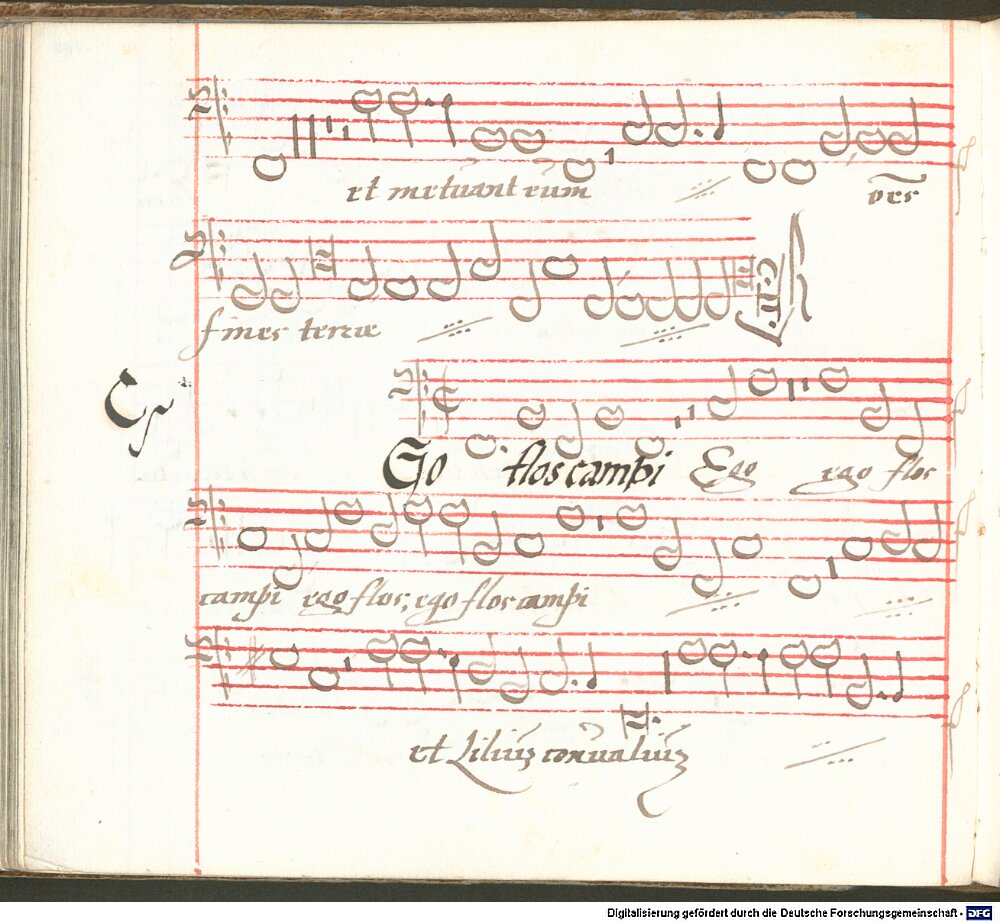 et metuant eum oẽs
fines terrae
Ego flos campi Ego ego flos
campi ego flos, ego flos campi
et Liliuȝ conualiuȝ
Digitalisierung gefördert durch die Deutsche Forschungsgemeinschaft - DFG